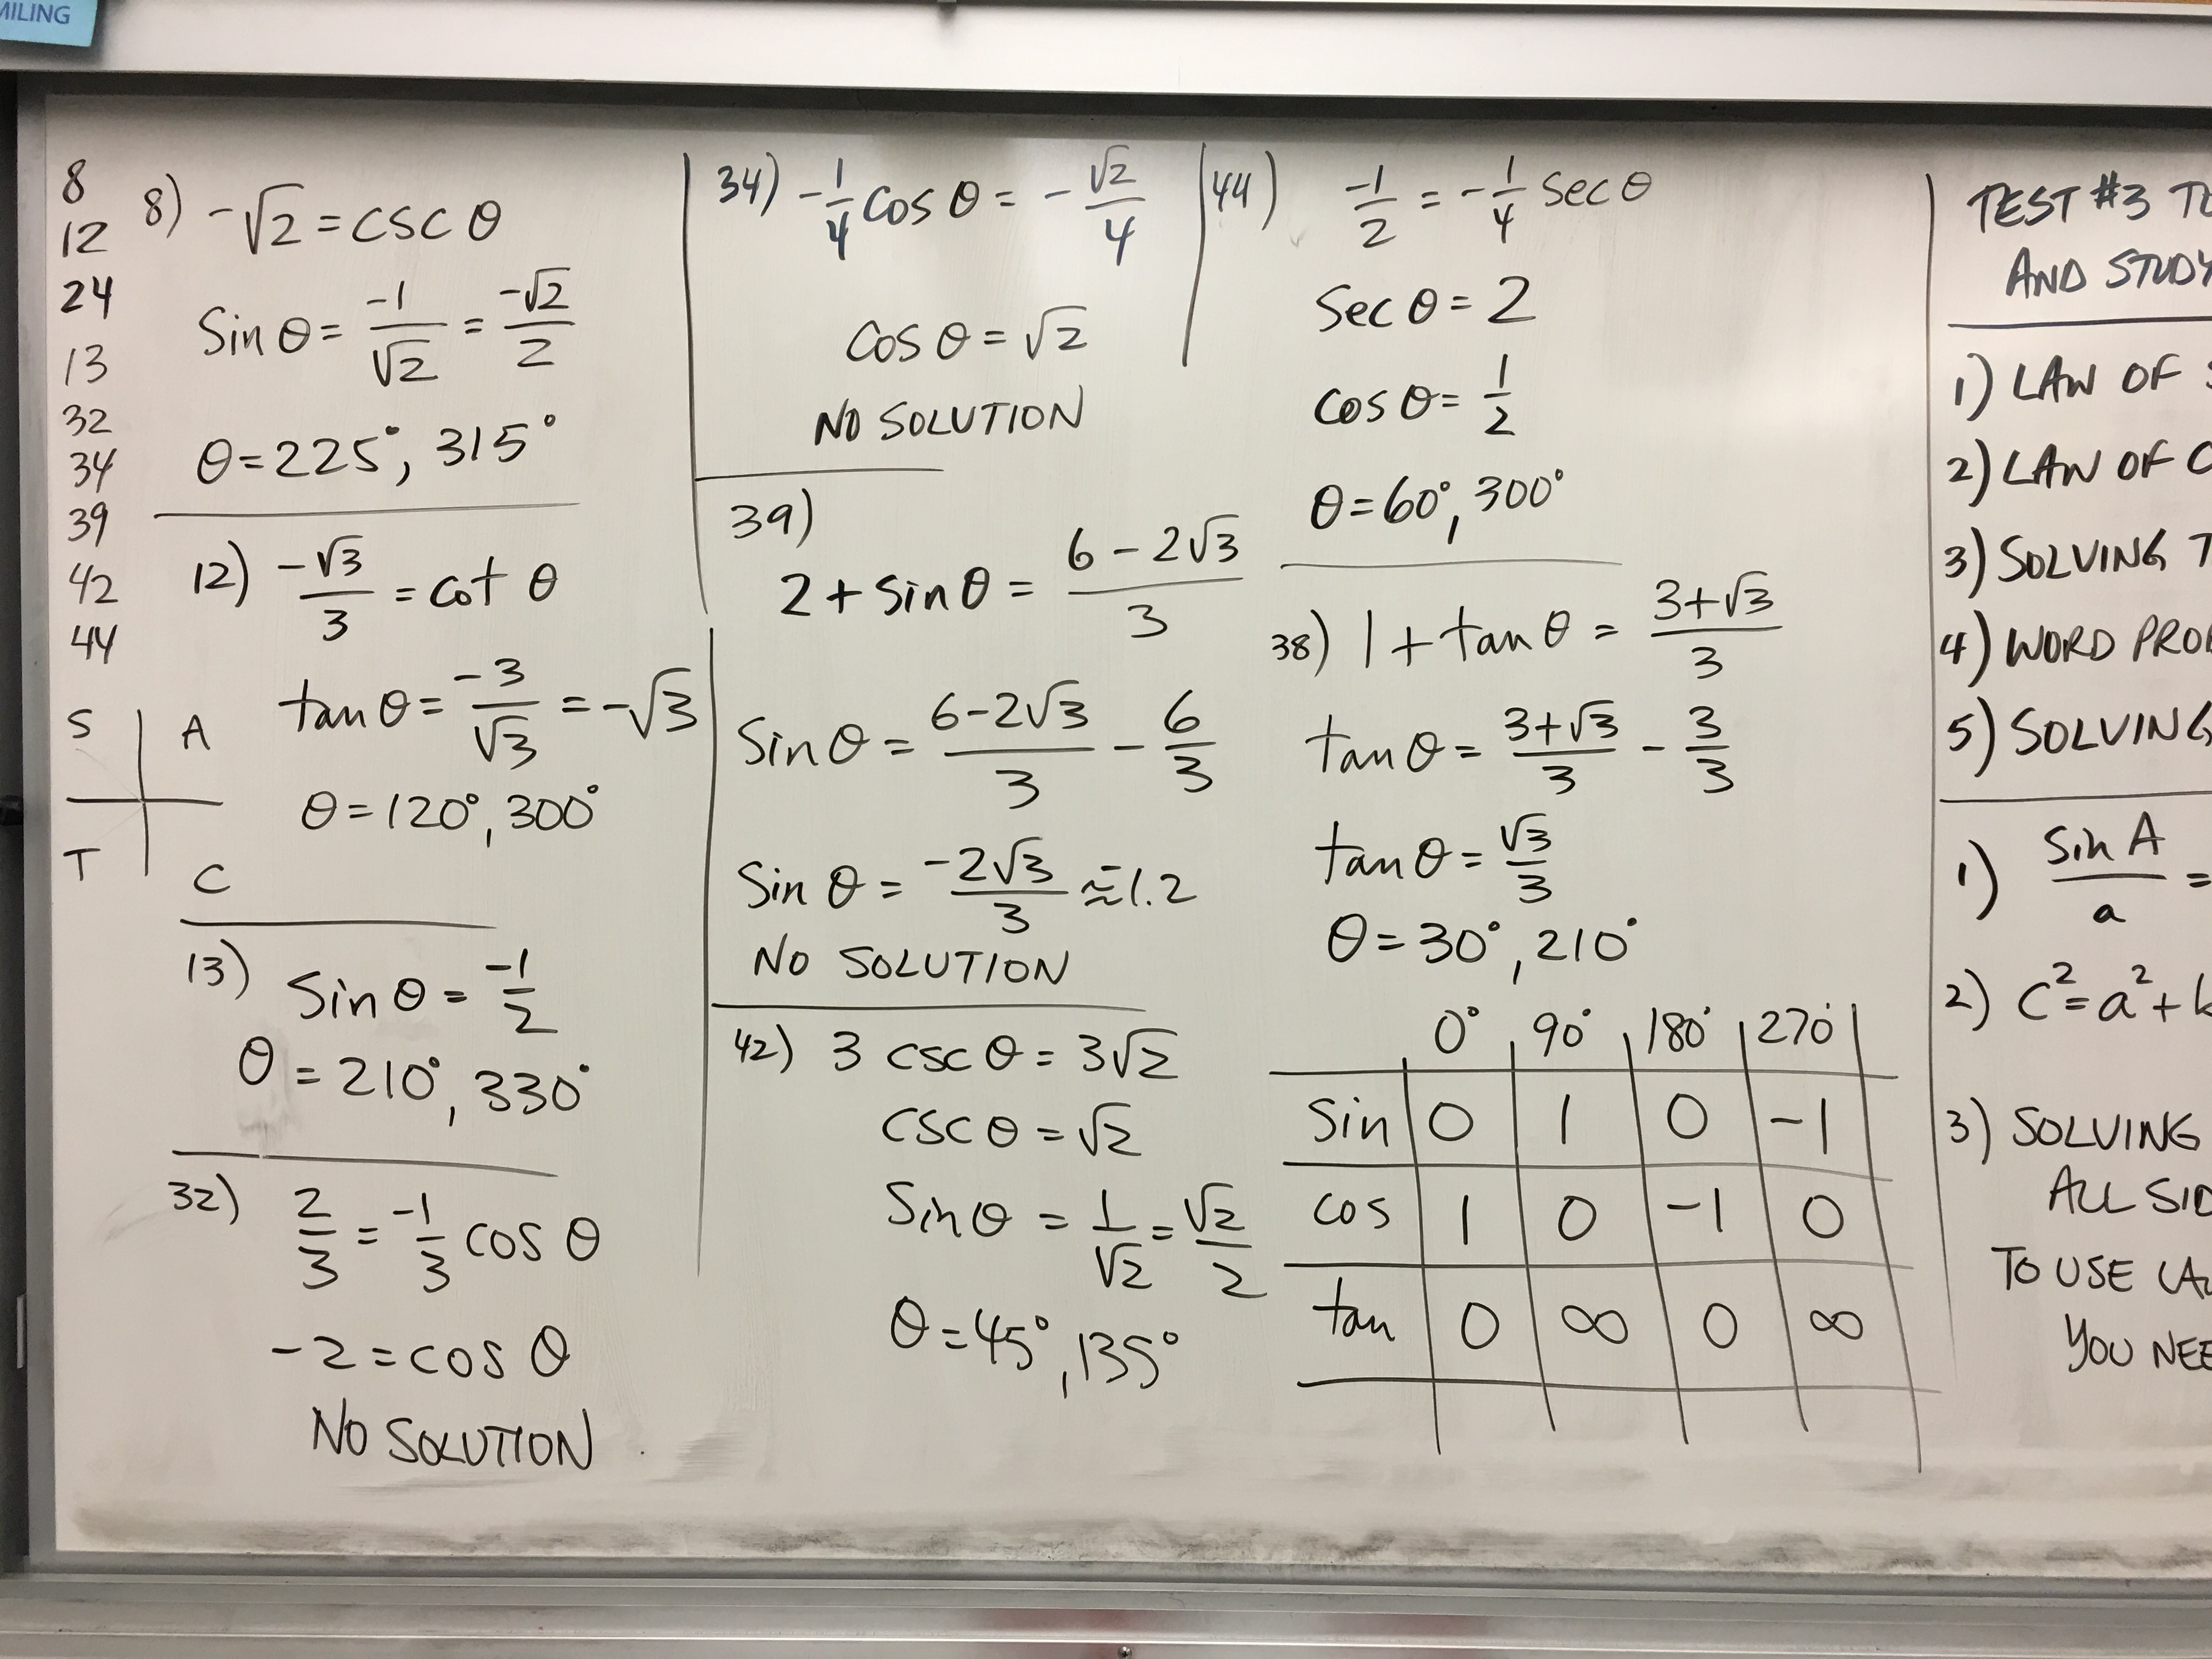 MILING
8
12
24
13
32
34
39
42
44
S A
T C
8) -√2 = csc θ
sin θ = -1/√2 = -√2/2
θ = 225°, 315°
12) -√3/3 = cot θ
tan θ = -3/√3 = -√3
θ = 120°, 300°
13) sin θ = -1/2
θ = 210°, 330°
32) 2/3 = -1/3 cos θ
-2 = cos θ
NO SOLUTION
34) -1/4 cos θ = -√2/4
cos θ = √2
NO SOLUTION
39)
2 + sin θ = (6 - 2√3)/3
sin θ = (6-2√3)/3 - 6/3
sin θ = -2√3/3 ≈ -1.2
NO SOLUTION
42) 3 csc θ = 3√2
csc θ = √2
sin θ = 1/√2 = √2/2
θ = 45°, 135°
44) -1/2 = -1/4 sec θ
sec θ = 2
cos θ = 1/2
θ = 60°, 300°
38) 1 + tan θ = (3+√3)/3
tan θ = (3+√3)/3 - 3/3
tan θ = √3/3
θ = 30°, 210°
0° 90° 180° 270°
sin 0 1 0 -1
cos 1 0 -1 0
tan 0 ∞ 0 ∞
TEST #3 TO
AND STUDY
1) LAW OF
2) LAW OF C
3) SOLVING T
4) WORD PRO
5) SOLVING
1) sin A/a =
2) c² = a² +
3) SOLVING
ALL SID
TO USE LAW
YOU NEE